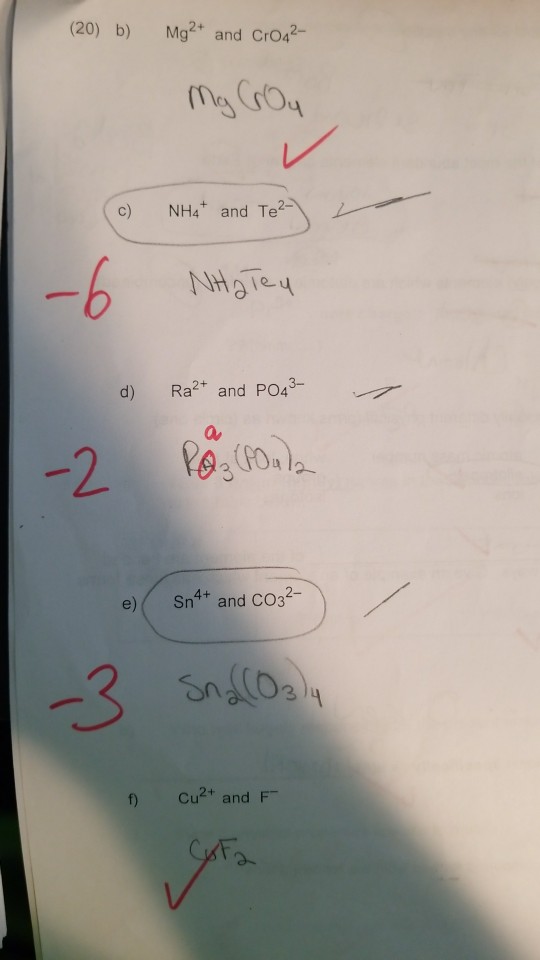 (20) b) Mg²⁺ and CrO₄²⁻
MgCrO₄
c) NH₄⁺ and Te²⁻
-6 NH₂Te₄
d) Ra²⁺ and PO₄³⁻
a
-2 RA₃(PO₄)₂
e) Sn⁴⁺ and CO₃²⁻
-3 Sn₂(CO₃)₄
f) Cu²⁺ and F⁻
CuF₂